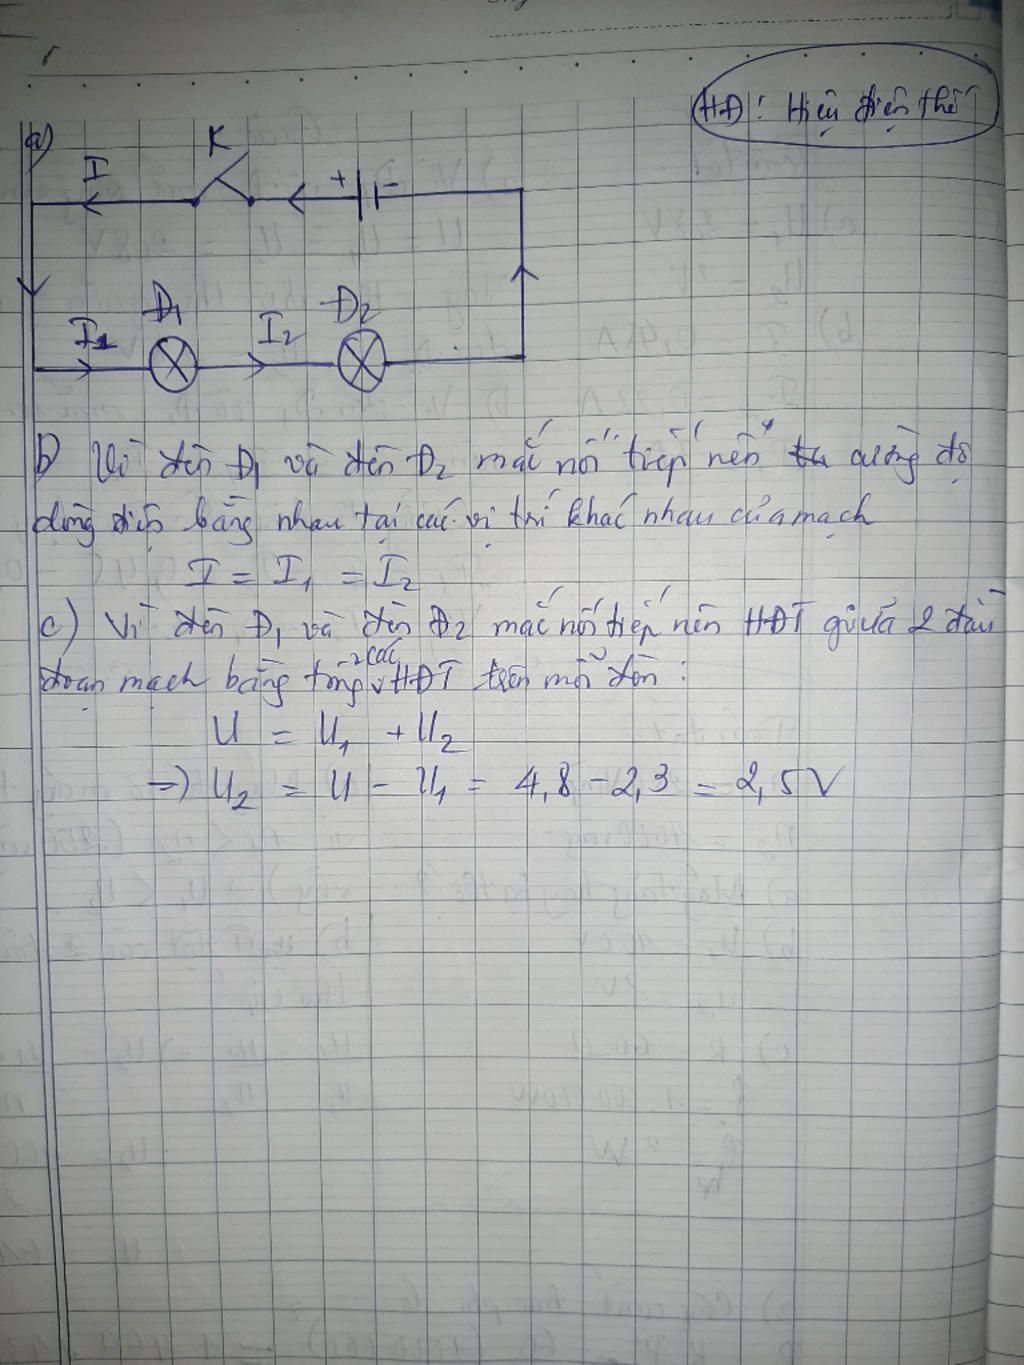 HĐ: Hiệu điện thế
a)
K
I
+ -
Đ1
Đ2
I1
I2
b) Vì đèn Đ1 và đèn Đ2 mắc nối tiếp nên cường độ
dòng điện bằng nhau tại các vị trí khác nhau của mạch
I = I1 = I2
c) Vì đèn Đ1 và đèn Đ2 mắc nối tiếp nên HĐT giữa 2 đầu
đoạn mạch bằng tổng các HĐT trên mỗi đèn:
U = U1 + U2
=> U2 = U - U1 = 4,8 - 2,3 = 2,5V